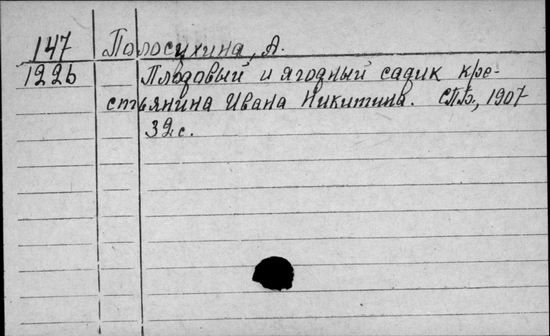 147 Полосухина, А.
1226 Плодовый и ягодный садик кре-
стьянина Ивана Никитина. СПБ, 1907
32 с.